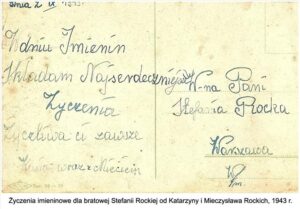 dnia 2 IX 1943.
W dniu Imienin
Składam Najserdeczniejsze
Życzenia
Życzliwa ci zawsze
W-na Pani
Stefania Rocka
Warszawa
Życzenia imieninowe dla bratowej Stefanii Rockiej od Katarzyny i Mieczysława Rockich, 1943 r.